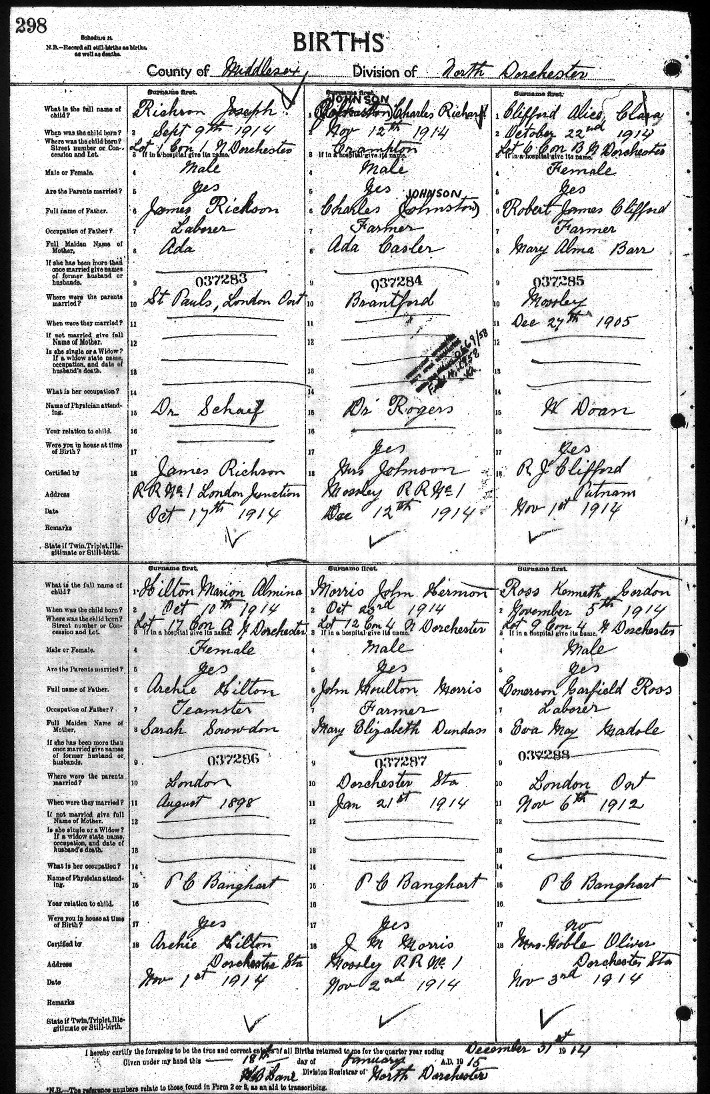 298
Schedule A.
N.B.—Record all still-births as births, as well as deaths.
BIRTHS
County of Middlesex Division of North Dorchester
Surname first. Surname first. Surname first.
What is the full name of child? 1 Rickson Joseph JOHNSON Charles Richard 1 Clifford Alice, Clara
When was the child born? 2 Sept 9th 1914 Nov 12th 1914 2 October 22nd 1914
Where was the child born? Street number or Concession and Lot. Lot 1 Con 1 N Dorchester Crampton Lot 6 Con B N Dorchester
3 If in a hospital give its name. 3 If in a hospital give its name. 3 If in a hospital give its name.
Male or Female. 4 Male 4 Male 4 Female
Are the Parents married? 5 Yes 5 Yes 5 Yes
JOHNSON
Full name of Father. 6 James Rickson 6 Charles (Johnston) 6 Robert James Clifford
Occupation of Father? 7 Laborer 7 Farmer 7 Farmer
Full Maiden Name of Mother. 8 Ada 8 Ada Casler 8 Mary Alma Barr
If she has been more than once married give names of former husband or husbands. 9 037283 9 037284 9 037285
Where were the parents married? 10 St Pauls, London Ont 10 Brantford 10 Mossley
When were they married? 11 11 11 Dec 27th 1905
If not married give full Name of Mother. 12 12 12
Is she single or a Widow? If a widow state name, occupation, and date of husband's death. 13 13 13
What is her occupation? 14 14 14
Name of Physician attending. 15 Dr Schaef 15 Dr Rogers 15 W Doan
Your relation to child. 16 16 16
Were you in house at time of Birth? 17 17 Yes 17 Yes
Certified by 18 James Rickson 18 Mrs Johnson 18 R J Clifford
Address R R No. 1 London Junction Mossley R R No 1 Putnam
Date Oct 17th 1914 Dec 12th 1914 Nov 1st 1914
Remarks
State if Twin, Triplet, Illegitimate or Still-birth.
Surname first. Surname first. Surname first.
What is the full name of child? 1 Hilton Marion Almina Morris John Hermon Ross Kenneth Gordon
When was the child born? 2 Oct 10th 1914 2 Oct 23rd 1914 2 November 5th 1914
Where was the child born? Street number or Concession and Lot. Lot 17 Con A N Dorchester Lot 12 Con 4 N Dorchester Lot 9 Con 4 N Dorchester
3 If in a hospital give its name. 3 If in a hospital give its name. 3 If in a hospital give its name.
Male or Female. 4 Female 4 Male 4 Male
Are the Parents married? 5 Yes 5 Yes 5 Yes
Full name of Father. 6 Archie Hilton 6 John Moulton Morris 6 Emerson Garfield Ross
Occupation of Father? 7 Teamster 7 Farmer 7 Laborer
Full Maiden Name of Mother. 8 Sarah Snowdon 8 Mary Elizabeth Dundass 8 Eva May Madole
If she has been more than once married give names of former husband or husbands. 9 037286 9 037287 9 037288
Where were the parents married? 10 London 10 Dorchester Sta 10 London Ont
When were they married? 11 August 1898 11 Jan 21st 1914 11 Nov 6th 1912
If not married give full Name of Mother. 12 12 12
Is she single or a Widow? If a widow state name, occupation, and date of husband's death. 13 13 13
What is her occupation? 14 14 14
Name of Physician attending. 15 P C Banghart 15 P C Banghart 15 P C Banghart
Your relation to child. 16 16 16
Were you in house at time of Birth? 17 Yes 17 Yes 17 no
Certified by 18 Archie Hilton 18 J M Morris 18 Mrs. Noble Oliver
Address Dorchester Sta Mossley R R No. 1 Dorchester Sta
Date Nov 1st 1914 Nov 2nd 1914 Nov 3rd 1914
Remarks
State if Twin, Triplet, Illegitimate or Still-birth.
I hereby certify the foregoing to be the true and correct entries of all Births returned to me for the quarter year ending December 31st 1914
Given under my hand this 18th day of January A.D. 1915
W B Lane Division Registrar of North Dorchester
*N.B.—The reference numbers relate to those found in Form 2 or 3, as an aid to transcribing.